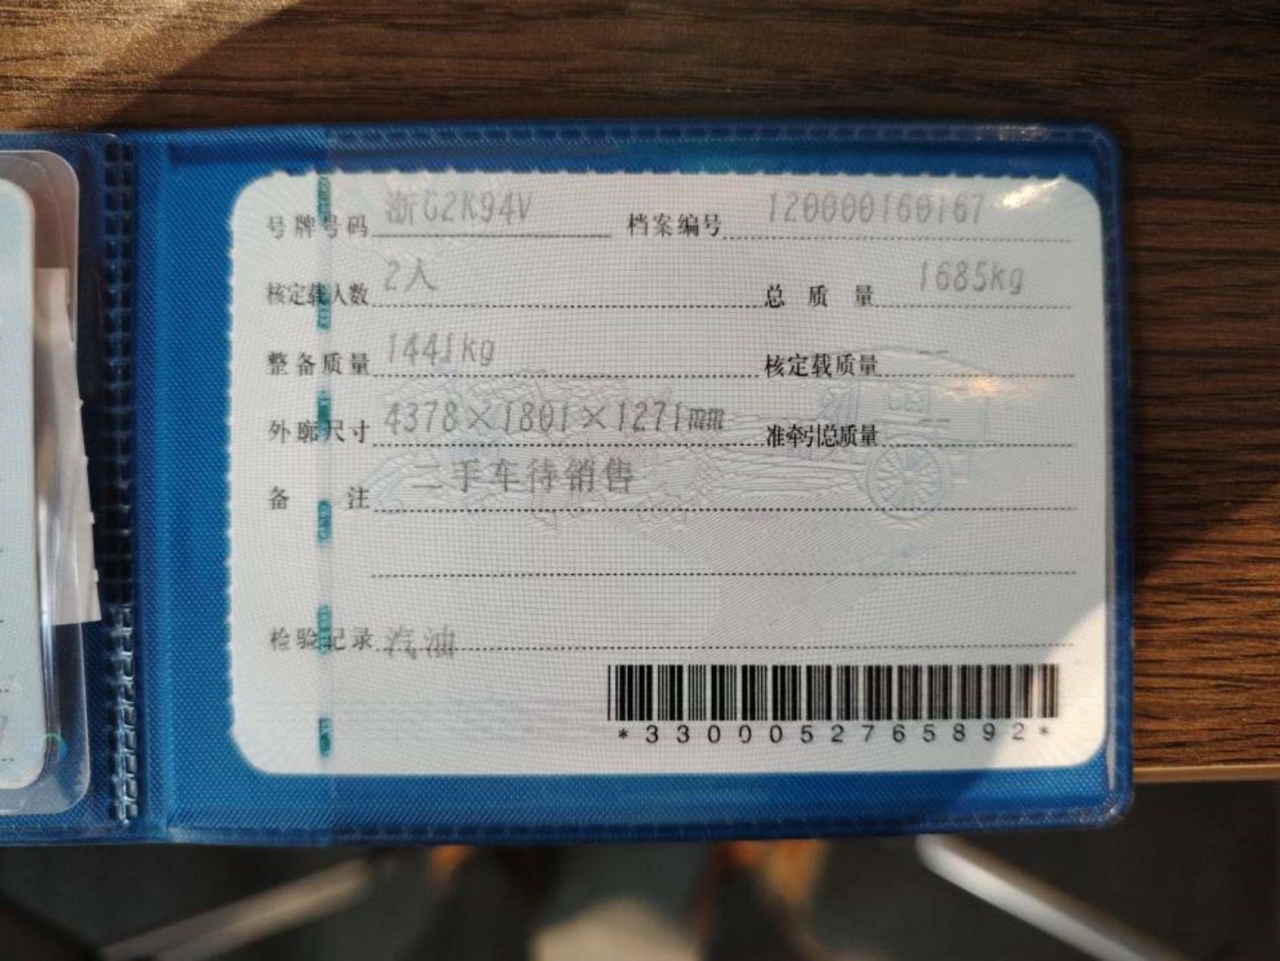 号牌号码 浙G2K94V 档案编号 120000160167
核定载人数 2人 总质量 1685kg
整备质量 1441kg 核定载质量 --
外廓尺寸 4378×1801×1271mm 准牵引总质量 --
备注 二手车待销售
检验记录 汽油
*3300052765892*